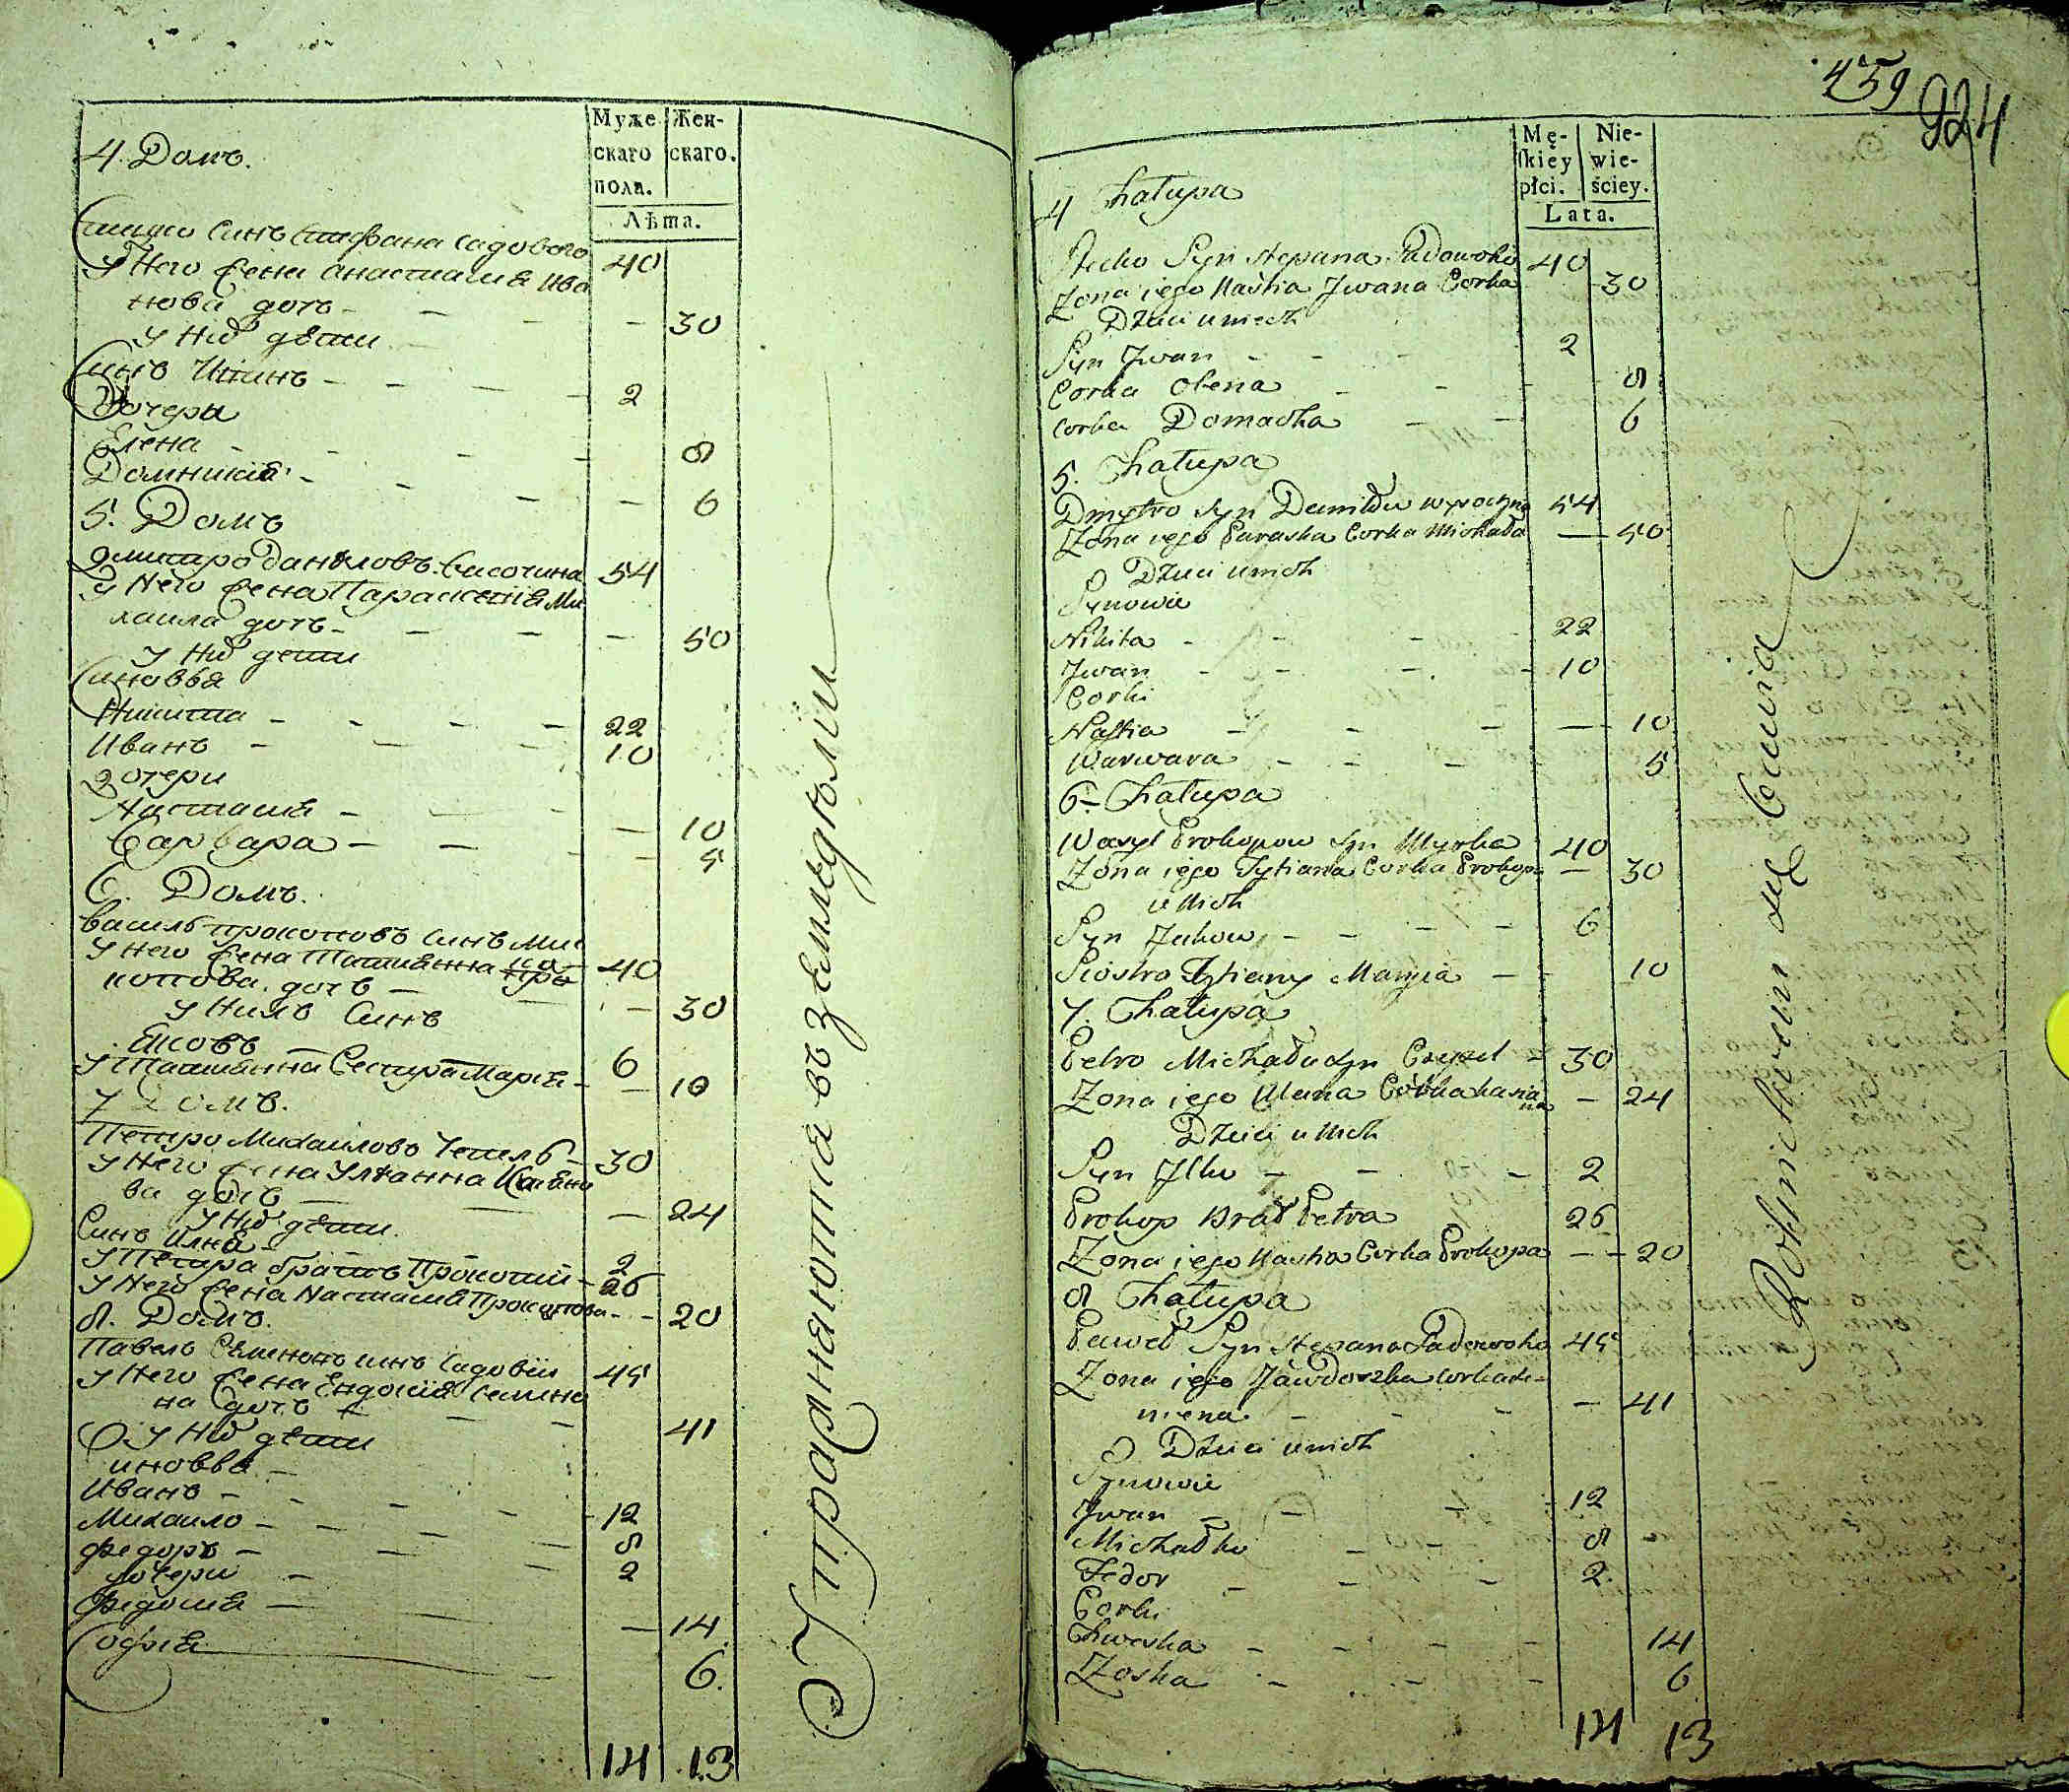 Муже
скаго
пола.
Жен-
скаго.
Лѣта.
4. Домъ.
Стицко Синъ Стефана Садового 40
У Него Жена Анастасия Ива
нова дочь - - - 30
У Них дети
Синъ Иванъ - - - 2
Дочери
Елена - - - 8
Домникия - - - 6
5. Домъ
Дмитро Даниловъ Височина 54
У Него Жена Параскевия Ми
хаила дочь - - - 50
У Них дети
Синовья
Никита - - - 22
Иванъ - - - 10
Дочери
Настасия - - - 10
Варвара - - - 5
6. Домъ.
Василь Прокоповъ Синъ
У Него Жена Татиянна Про 40
копова дочь - - 30
У Нихъ Синъ
Яковъ - 6
У Татиянни Сестра Мария - - 10
7 Домъ.
Петро Михайловъ - 30
У Него Жена Улиянна Касияно
ва дочь - - 24
У Них дети.
Синъ Илия - 2
У Петра братъ Прокопий - 26
У Него Жена Настасия Прокопова - - 20
8. Домъ.
Павелъ Семеновъ синъ Садовий 45
У Него Жена Евдокия Семено
на дочь - - - 41
У Них дети
Синовья -
Иванъ - - - 12
Михаило - - - 8
Федоръ - - - 2
Дочери -
Федосия - - 14
София - - 6.
14 13
Упражняются въ земледелии
459
924
Mę-
ſkiey
płci.
Nie-
wie-
ściey.
Lata.
4 Chałupa
Stecko Syn Stepana Sadowoho 40
Zona iego Nastia Jwana Corka 30
Dzieci u nich
Syn Jwan - - - 2
Corka Olena - - - 8
Corka Domaska - - 6
5. Chałupa
Dmytro Syn Daniłow Wysoczyna 54
Zona iego Paraska Corka Michała — 50
Dzieci u nich
Synowie
Nikita - - - 22
Jwan - - - 10
Corki
Nastia - - - — 10
Warwara - - - 5
6. Chałupa
Wasyl Prokopow Syn Myrka 40
Zona iego Tytiana Corka Prokopa — 30
u Nich
Syn Jakow - - - - 6
Siostra Tytiany Maryia - - 10
7. Chałupa
Petro Michała Syn - 30
Zona iego Ulana Corka Kasia
na - 24
Dzieci u Nich
Syn Jlko - - - 2
Prokop Brat Petra 26
Zona iego Nastia Corka Prokopa - - 20
8 Chałupa
Paweł Syn Stepana Sadowoho 45
Zona iego Jawdoszka Corka Se-
mena - - - — 41
Dzieci u nich
Synowie
Jwan - - - 12
Michałko - - - 8
Fedor - - - 2.
Corki
Chweska - - - - 14
Zoska - - - 6
14 13
Rolnictwem się bawia